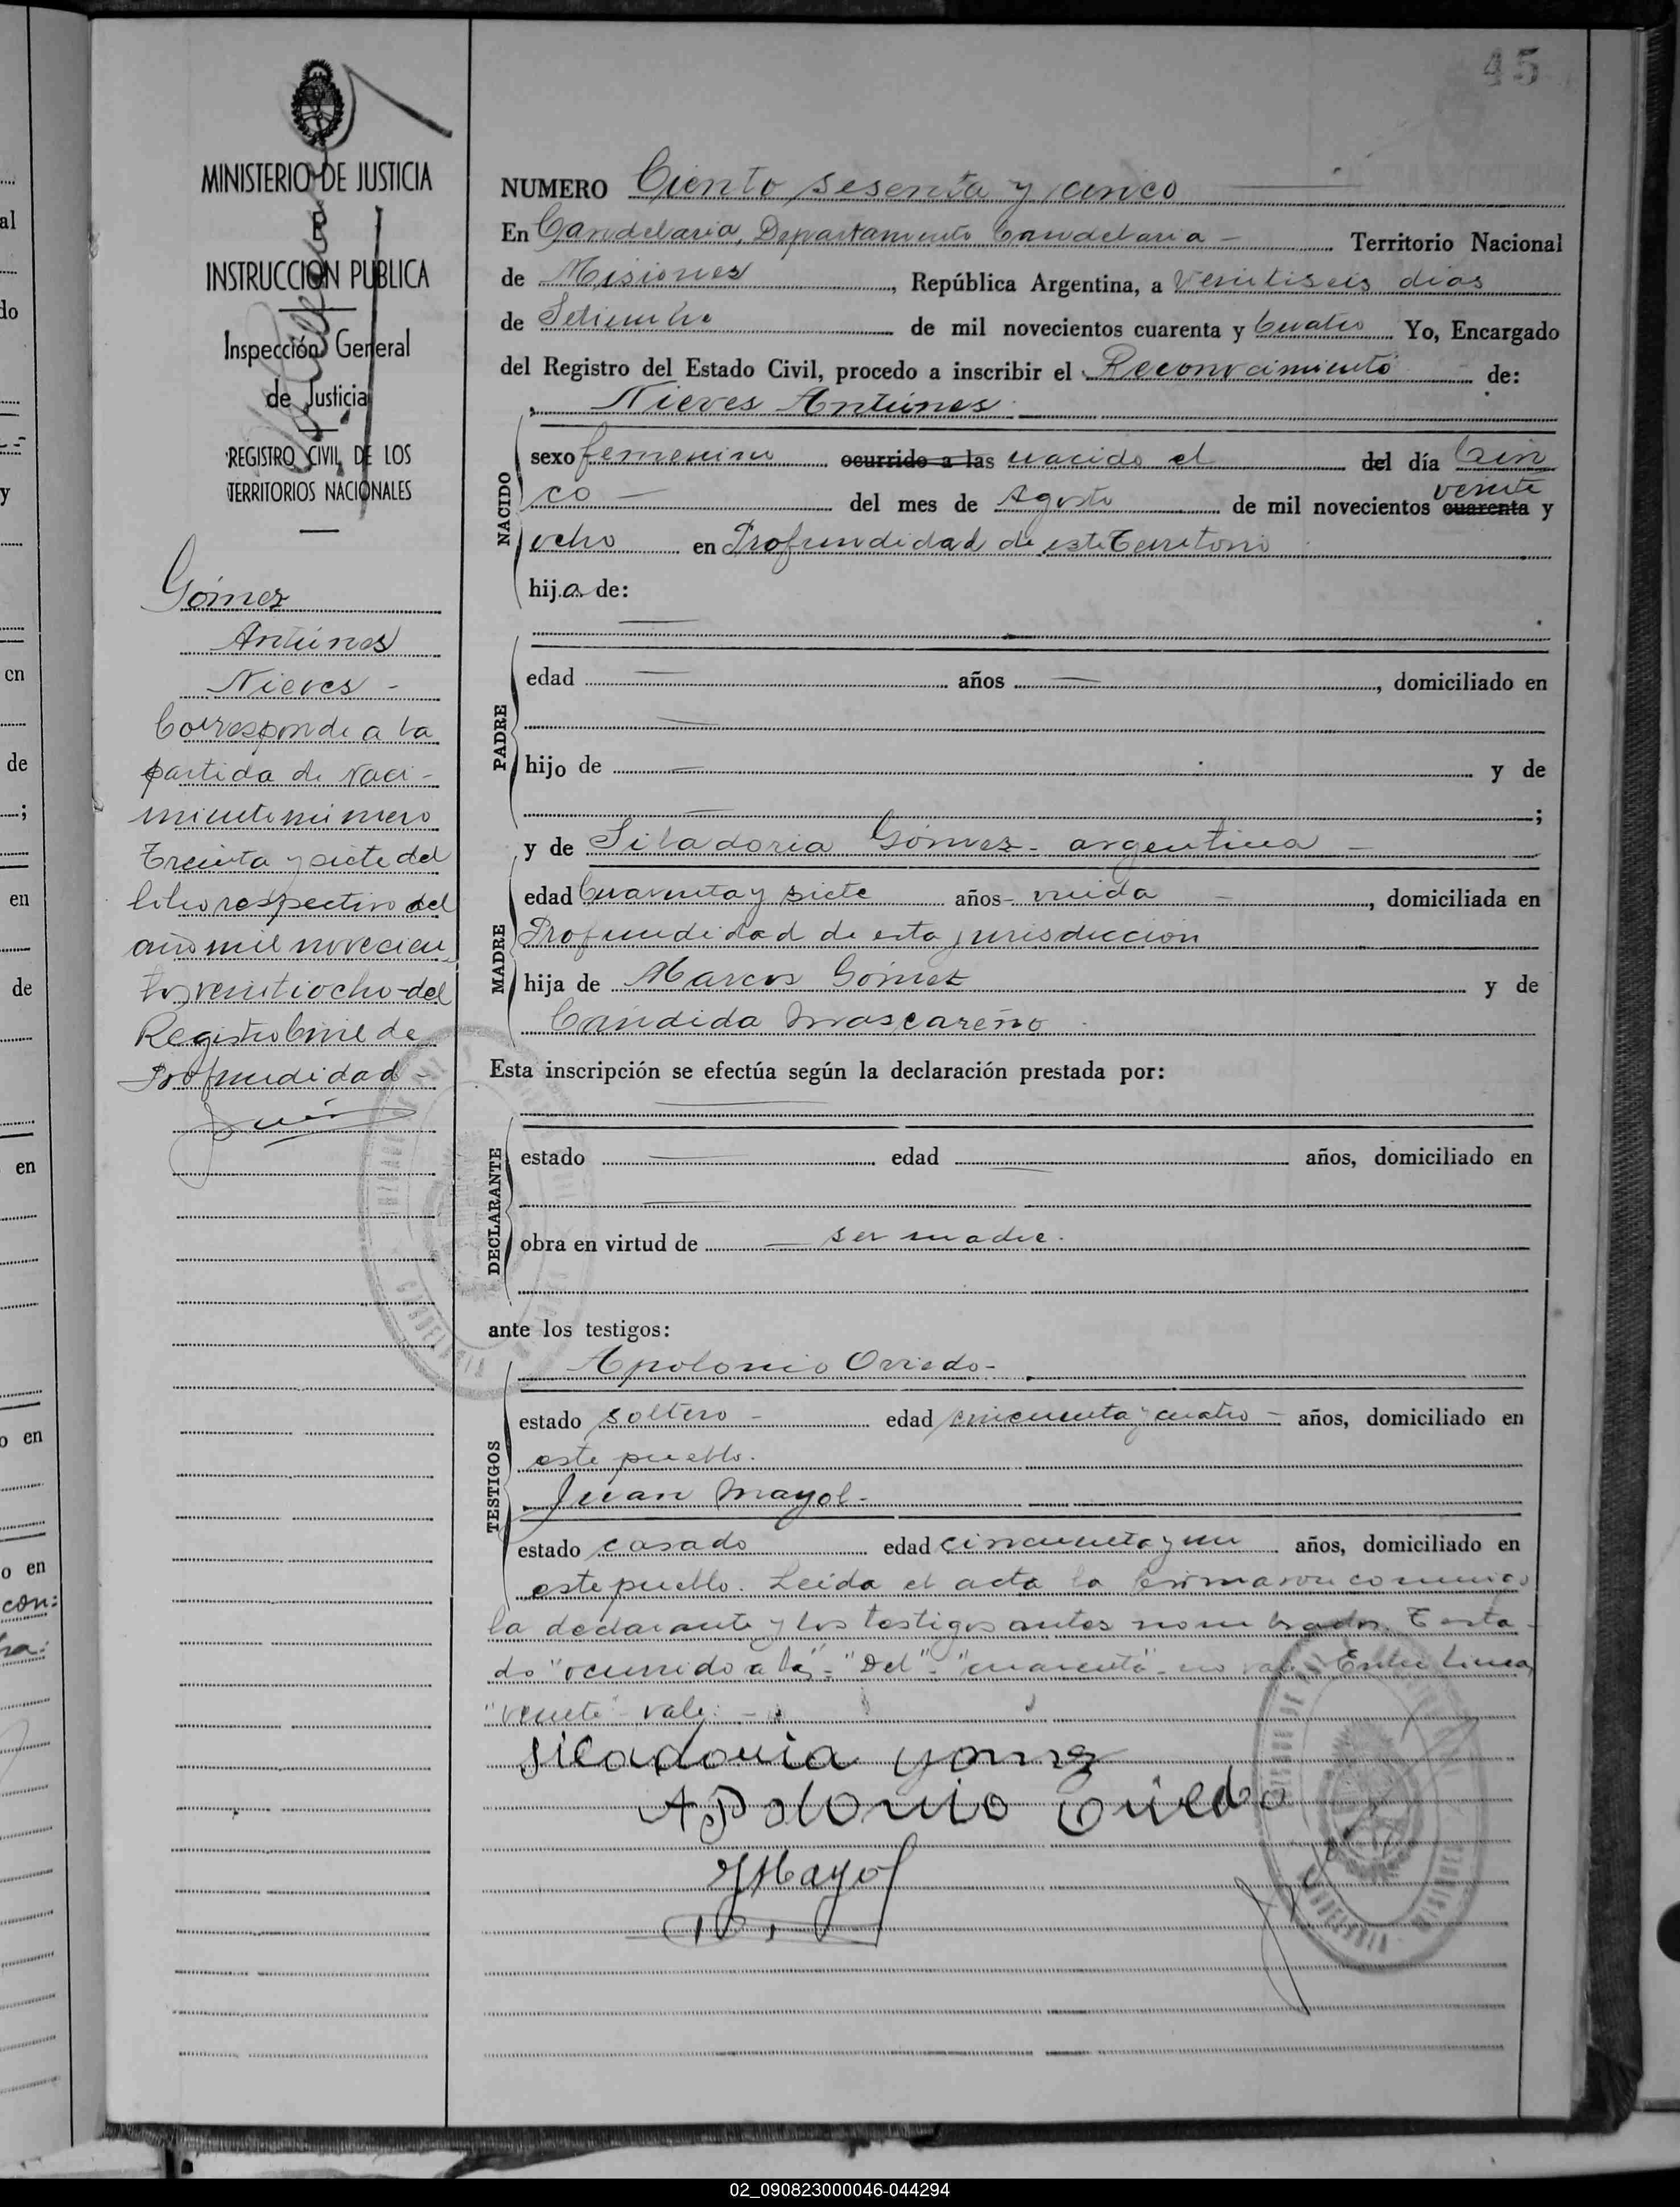 45
MINISTERIO DE JUSTICIA
E
INSTRUCCION PUBLICA
Inspección General
de Justicia
REGISTRO CIVIL DE LOS
TERRITORIOS NACIONALES
Gómez
Antúnes
Nieves -
Corresponde a la
partida de Naci-
miento número
Treinta y siete del
libro respectivo del
año mil novecien
tos veintiocho - del
Registro Civil de
Profundidad -
NUMERO Ciento sesenta y cinco
En Candelaria, Departamento Candelaria - Territorio Nacional
de Misiones, República Argentina, a veintiseis dias
de Setiembre de mil novecientos cuarenta y Cuatro Yo, Encargado
del Registro del Estado Civil, procedo a inscribir el Reconocimiento de:
Nieves Antúnes
NACIDO
sexo femenino ocurrido a las nacido el del día Cin
co del mes de Agosto de mil novecientos cuarenta veinte y
ocho en Profundidad de este Territorio
hija de:
PADRE
edad años, domiciliado en
hijo de y de
;
y de Siladoria Gómez - argentina -
MADRE
edad Cuarenta y siete años - viuda - , domiciliada en
Profundidad de esta jurisdicción
hija de Marcos Gómez y de
Cándida Mascareño
Esta inscripción se efectúa según la declaración prestada por:
DECLARANTE
estado edad años, domiciliado en
obra en virtud de ser madre.
ante los testigos:
TESTIGOS
Apolonio Oviedo -
estado soltero - edad cincuenta y cuatro - años, domiciliado en
este pueblo.
Juan Mayol -
estado casado edad cincuenta y un años, domiciliado en
este pueblo. Leida el acta la firmaron conmigo
la declarante y los testigos antes nombrados. Testa-
do "ocurrido a las" - "Del" - "cuarenta" - no vale - Entre linea
"veinte" - vale. -
Siladonia gomez
Apolonio Oviedo
JMayol
02_090823000046-044294